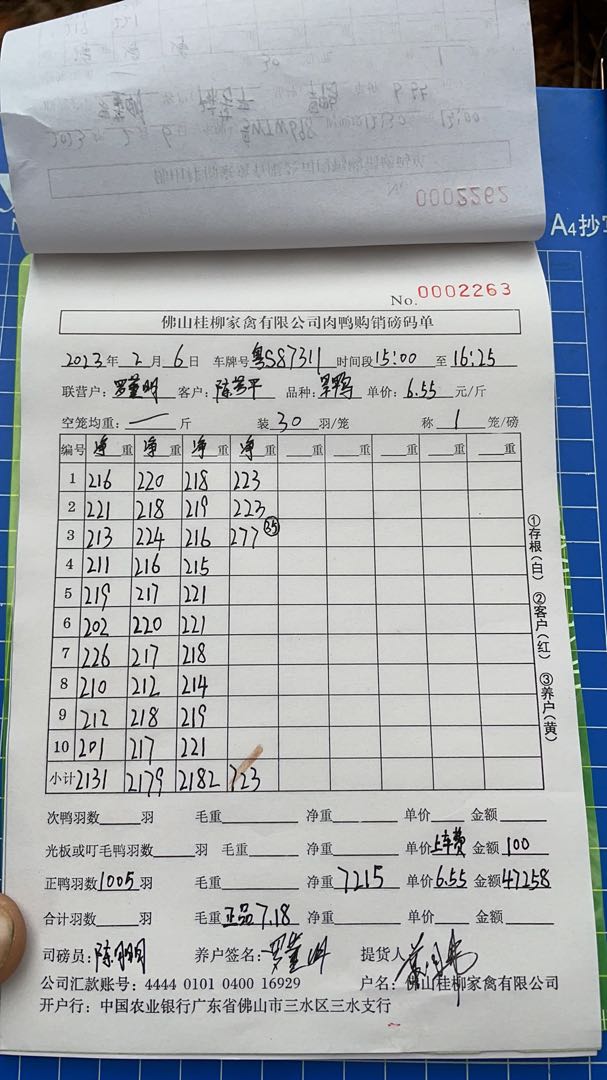 0002262
A4抄写
No. 0002263
佛山桂柳家禽有限公司肉鸭购销磅码单
2023年2月6日 车牌号粤S87311 时间段15:00至16:25
联营户：罗董明 客户：陈芳平 品种：罕鸭 单价：6.55元/斤
空笼均重：一斤 装30羽/笼 称1笼/磅
编号 净重 净重 净重 净重 重 重 重 重
1 216 220 218 223
2 221 218 219 223
3 213 224 216 277 35
4 211 216 215
5 219 217 221
6 202 220 221
7 226 217 218
8 210 212 214
9 212 218 219
10 201 217 221
小计 2131 2179 2182 723
①存根（白） ②客户（红） ③养户（黄）
次鸭羽数 羽 毛重 净重 单价 金额
光板或叮毛鸭羽数 羽 毛重 净重 单价上车费 金额100
正鸭羽数1005羽 毛重 净重7215 单价6.55 金额47258
合计羽数 羽 毛重正品7.18 净重 单价 金额
司磅员：陈明明 养户签名：罗董明 提货人
公司汇款账号：4444 0101 0400 16929 户名：佛山桂柳家禽有限公司
开户行：中国农业银行广东省佛山市三水区三水支行